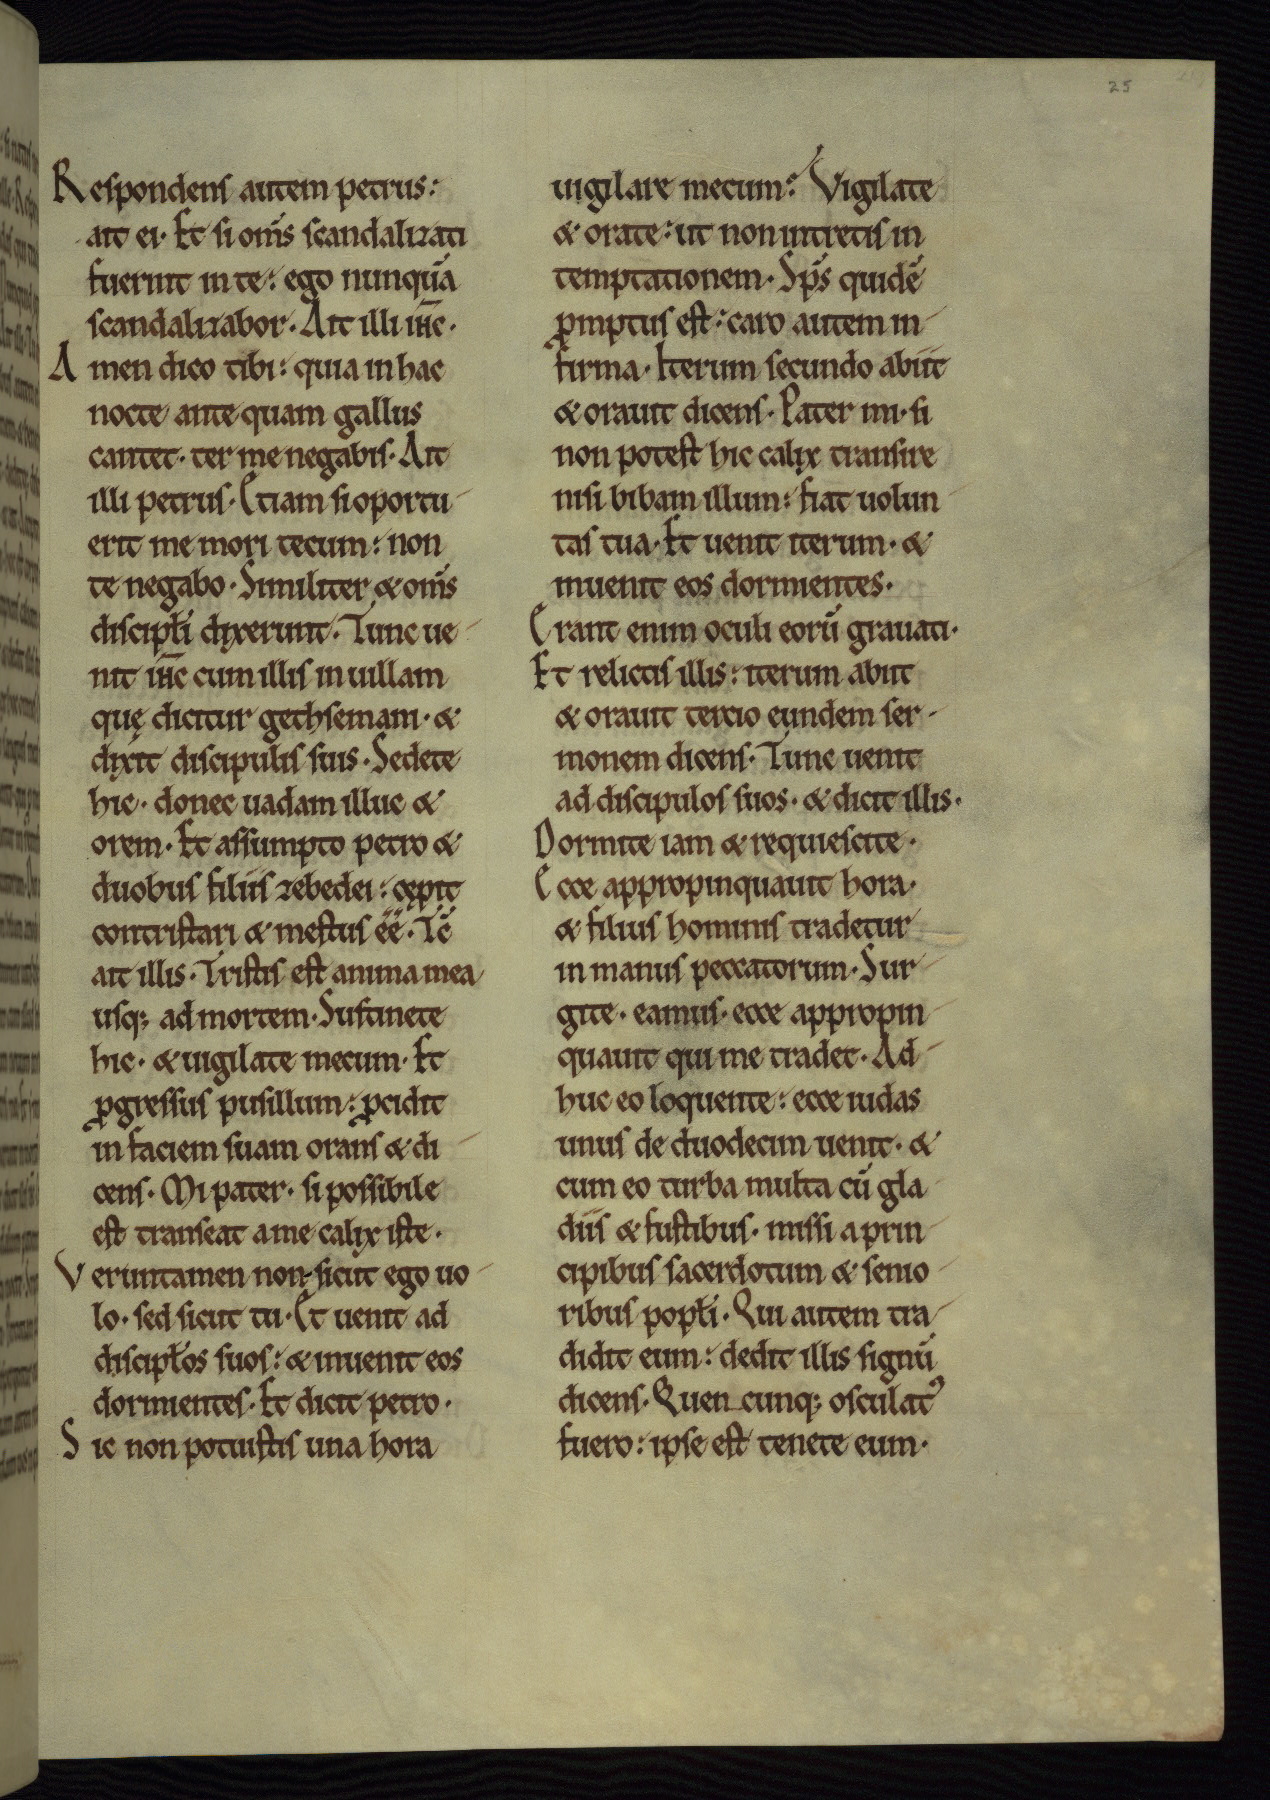 25
Respondens autem petrus:
ait ei. Et si om̅s scandalizati
fuerint in te: ego nunqua̅
scandalizabor. Ait illi ih̅c.
Amen dico tibi: quia in hac
nocte ante quam gallus
cantet. ter me negabis. Ait
illi petrus. Etiam si oportu-
erit me mori tecum: non
te negabo. Similiter & om̅s
discipłi dixerunt. Tunc ue-
nit ih̅c cum illis in uillam
quę dicitur gethsemani. &
dixit discipulis suis. Sedete
hic. donec uadam illuc &
orem. Et assumpto petro &
duobus filiis zebedei: cępit
contristari & mestus ee̅. Tc̅
ait illis. Tristis est anima mea
usq; ad mortem. Sustinete
hic. & uigilate mecum. Et
ꝓgressus pusillum: ꝓcidit
in faciem suam orans & di-
cens. Mi pater. si possibile
est transeat a me calix iste.
Veruntamen non sicut ego uo-
lo. sed sicut tu. Et uenit ad
discipłos suos: & inuenit eos
dormientes. Et dicit petro.
Sic non potuistis una hora
uigilare mecum? Vigilate
& orate: ut non intretis in
temptationem. Sp̅s quide̅
ꝓmptus est: caro autem in-
firma. Iterum secundo abiit
& orauit dicens. Pater mi. si
non potest hic calix transire
nisi bibam illum: fiat uolun-
tas tua. Et uenit iterum. &
inuenit eos dormientes.
Erant enim oculi eoru̅ grauati.
Et relictis illis: iterum abiit
& orauit tercio eundem ser-
monem dicens. Tunc uenit
ad discipulos suos. & dicit illis.
Dormite iam & requiescite.
Ecce appropinquauit hora.
& filius hominis tradetur
in manus peccatorum. Sur-
gite. eamus. ecce appropin-
quauit qui me tradet. Ad-
huc eo loquente: ecce iudas
unus de duodecim uenit. &
cum eo turba multa cu̅ gla-
diis & fustibus. missi a prin-
cipibus sacerdotum & senio-
ribus popłi. Qui autem tra-
didit eum: dedit illis signu̅
dicens. Quencunq; osculatꝰ
fuero: ipse est tenete eum.